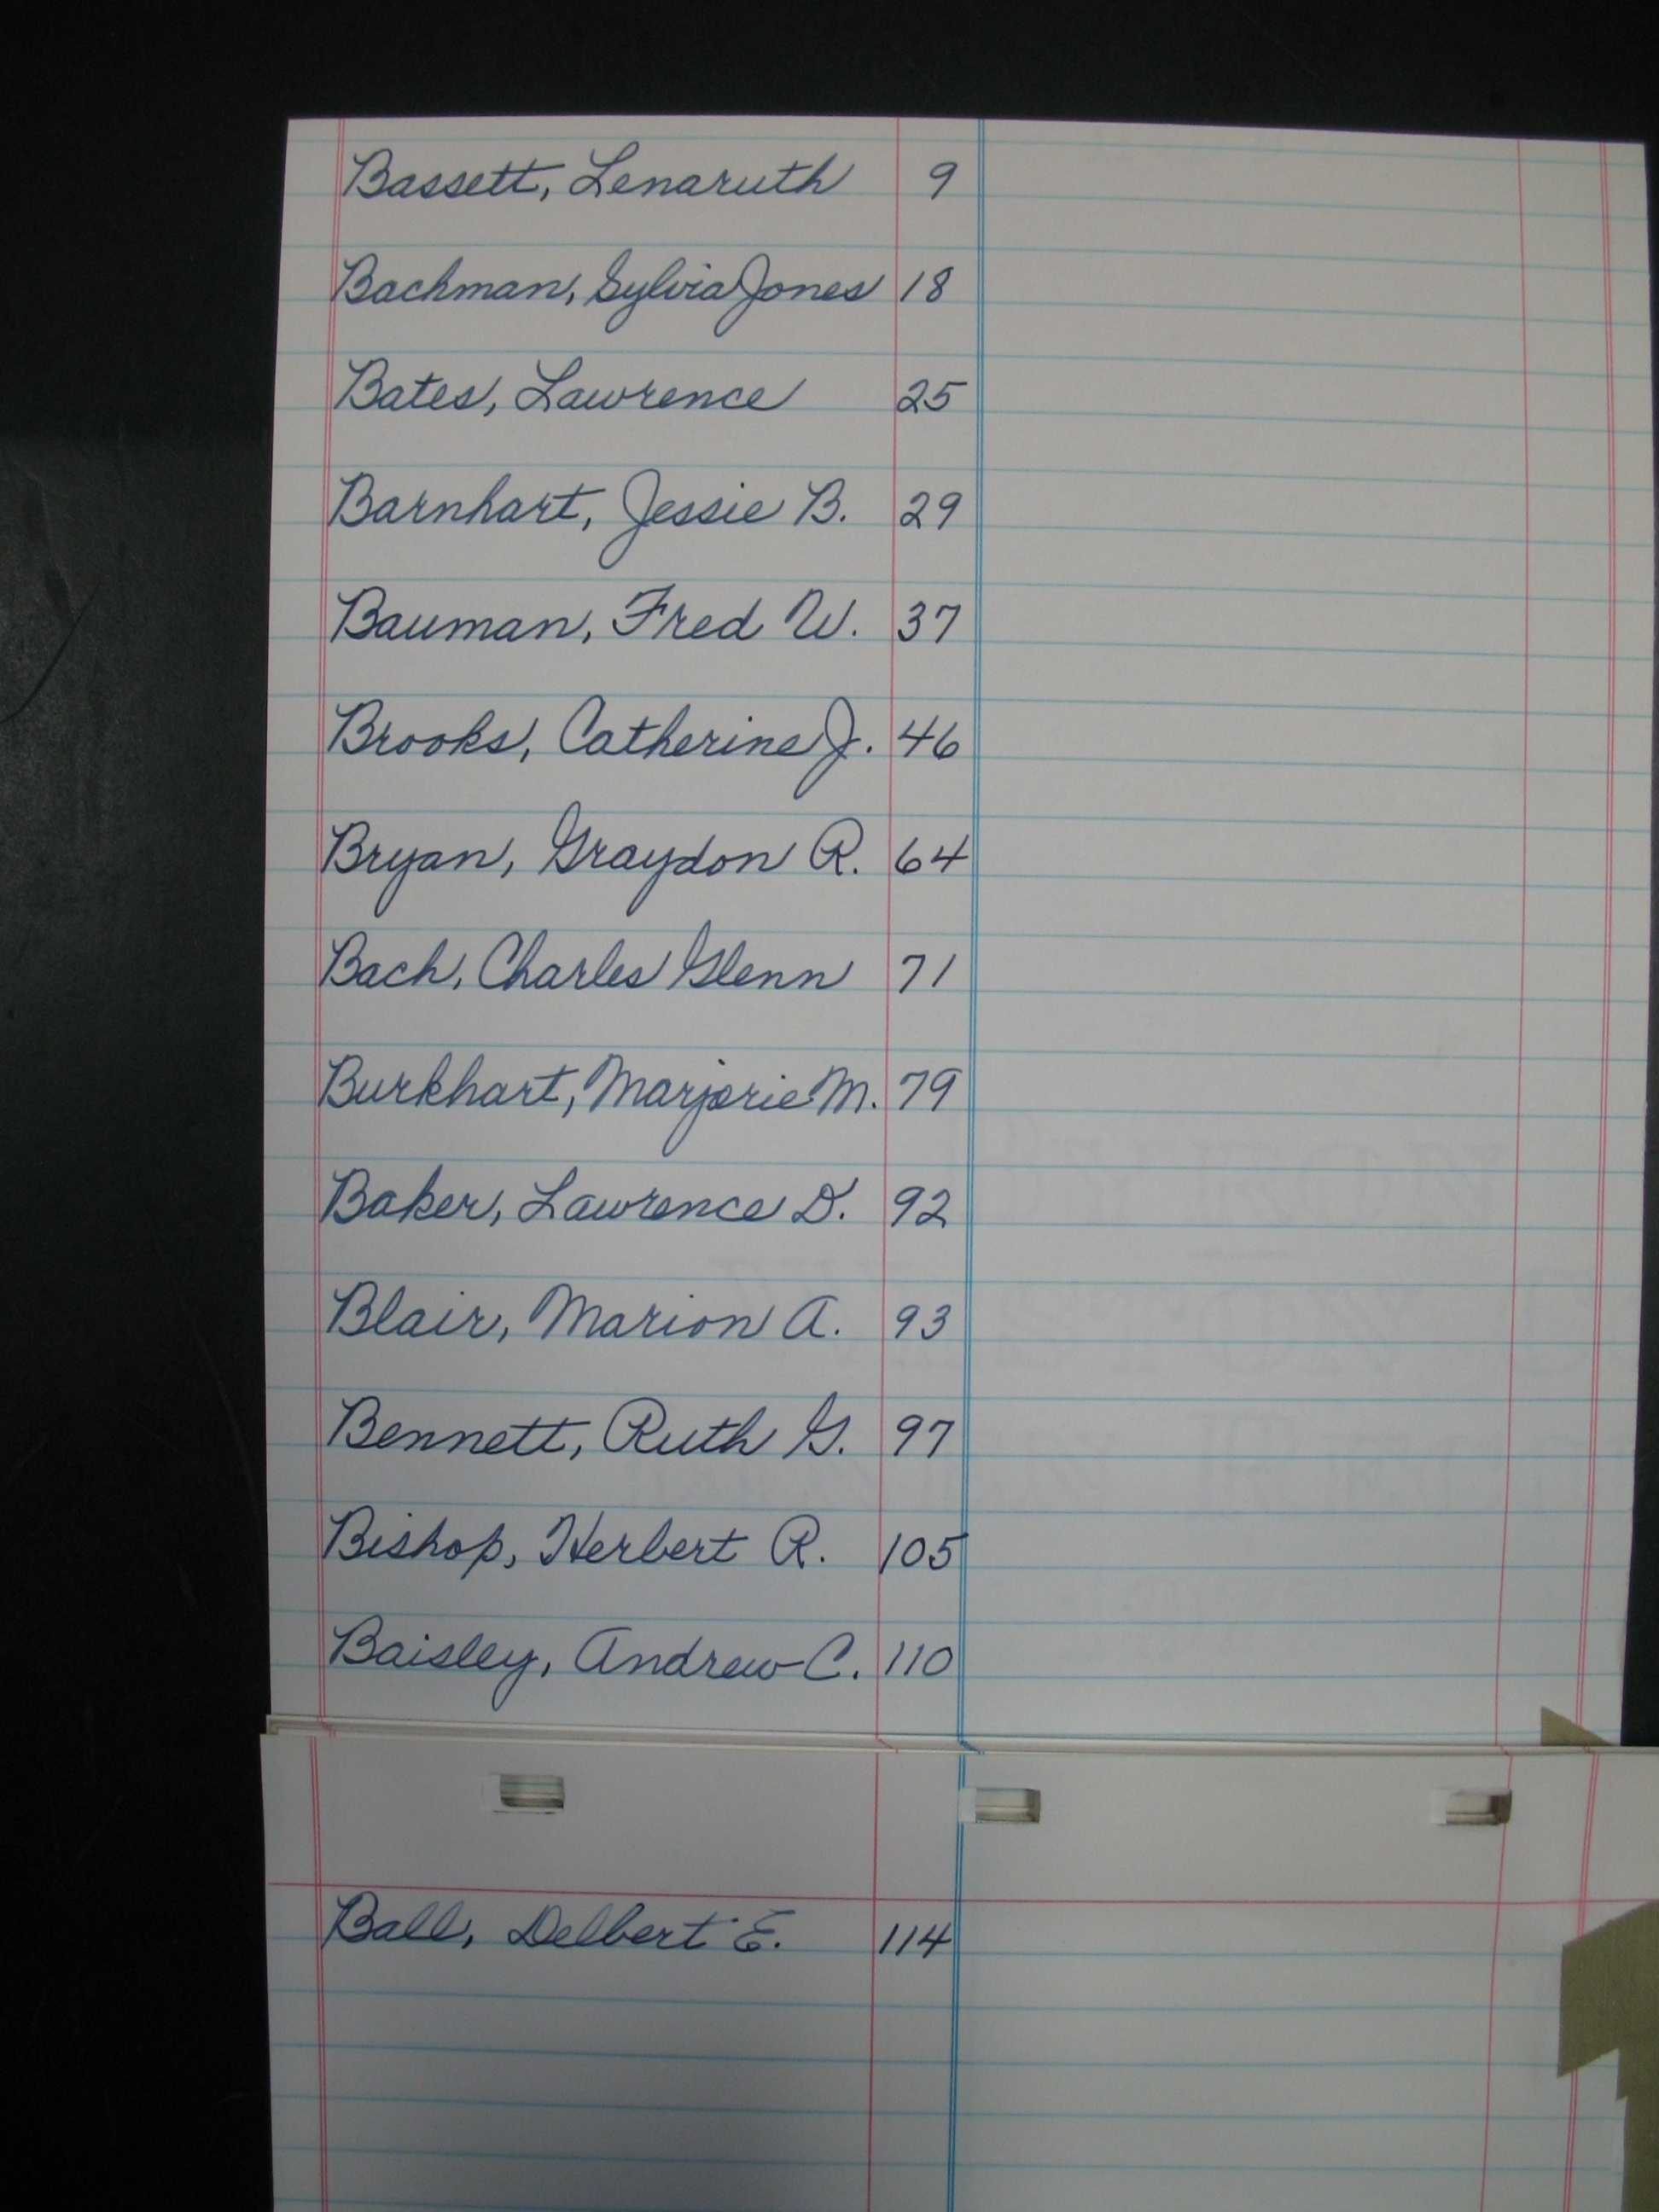 Bassett, Lenaruth 9
Bachman, Sylvia Jones 18
Bates, Lawrence 25
Barnhart, Jessie B. 29
Bauman, Fred W. 37
Brooks, Catherine J. 46
Bryan, Graydon R. 64
Bach, Charles Glenn 71
Burkhart, Marjorie M. 79
Baker, Lawrence D. 92
Blair, Marion A. 93
Bennett, Ruth G. 97
Bishop, Herbert R. 105
Baisley, Andrew C. 110
Ball, Delbert E. 114